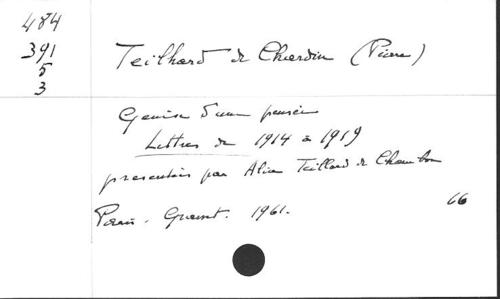 484
391
5
3
Teilhard de Chardin (Pierre)
Genèse d'une pensée
Lettres de 1914 à 1919
présentées par Alice Teillard de Chambon
Paris. Grasset. 1961.
66